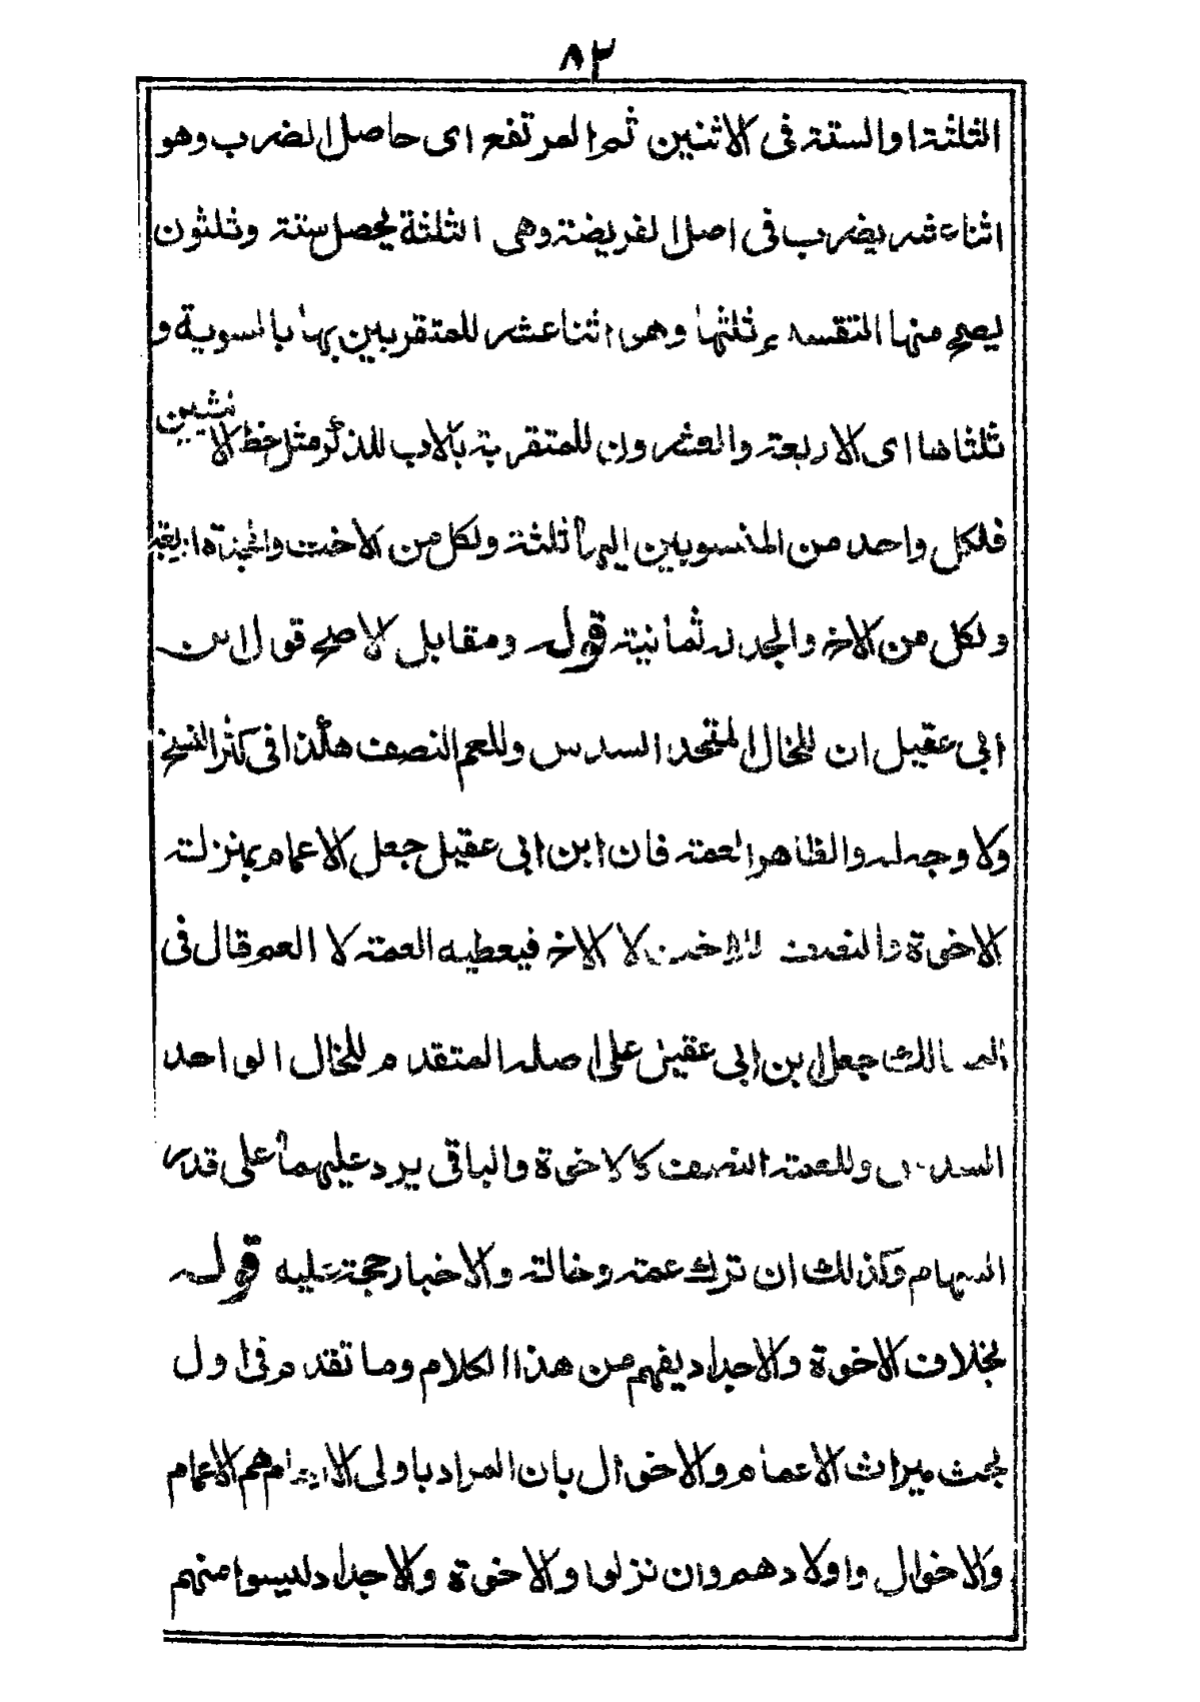 ٨٣
الثلثة او الستة فى الاثنين ثم المرتفع اى حاصل الضرب وهو
اثنا عشر يضرب فى اصل الفريضة وهى الثلثة يحصل ستة وثلثون
ليصح منها التقسيم ثلثها وهو اثنا عشر للمتقربين بها بالسوية و
ثلثاها اى الاربعة والعشرون للمتقربة بالاب للذكر مثل حظ الانثيين
فلكل واحد من المنسوبين اليها ثلثة ولكل من الاخت والجدة اربعة
ولكل من الاخ والجد له ثمانية قوله ومقابل الاصح قول ابن
ابى عقيل ان للخال المتحد السدس وللعم النصف هكذا فى اكثر النسخ
ولا وجه له والظاهر العمة فان ابن ابى عقيل جعل الاعمام بمنزلة
الاخوة فالنصف للاخت لا الاخ فيعطيه العمة لا العم قال فى
المسالك جعل ابن ابى عقيل على اصله المتقدم للخال الواحد
السدس وللعمة النصف كالاخوة والباقى يرد عليهما على قدر
السهام وكذلك ان ترك عمة وخالة والاخبار حجة عليه قوله
بخلاف الاخوة والاجداد يفهم من هذا الكلام وما تقدم فى اول
بحث ميراث الاعمام والاخوال بان المراد باولى الارحام هم الاعمام
والاخوال واولادهم وان نزلوا والاخوة والاجداد ليسوا منهم